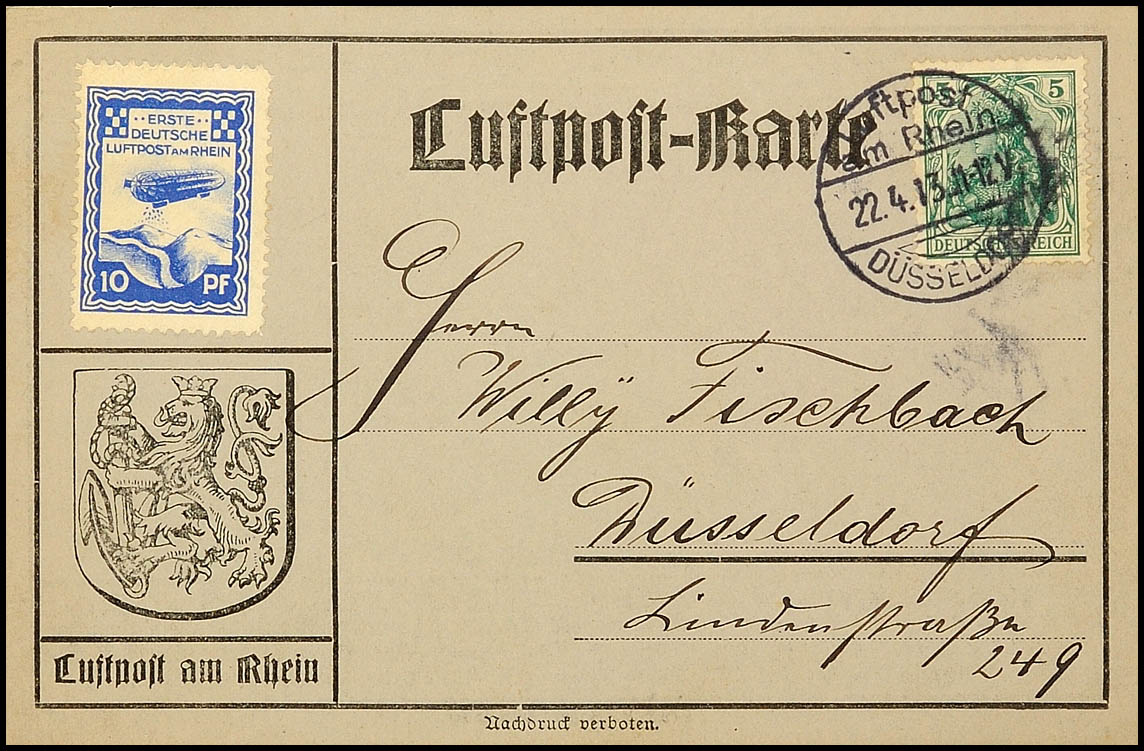 ·· ERSTE ··
DEUTSCHE
LUFTPOST AM RHEIN
10 PF
Luftpost-Karte
Luftpost
am Rhein
22.4.13.11-12V
DÜSSELDORF
5
DEUTSCHES REICH
Herrn
Willÿ Fischbach
Düsseldorf
Lindenstraße
249
Luftpost am Rhein
Nachdruck verboten.